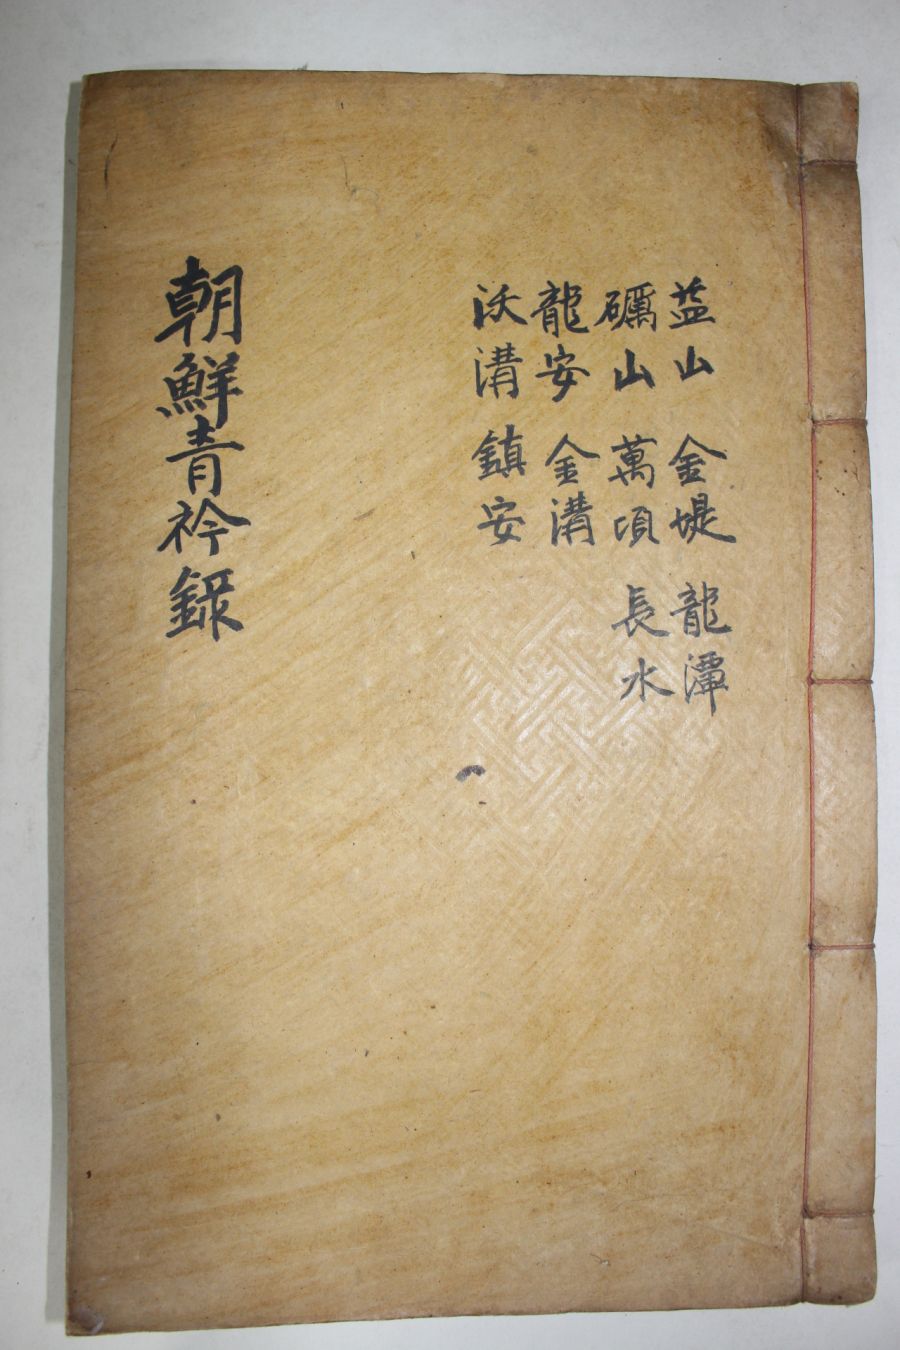 益山 金堤 龍潭
礪山 萬頃 長水
龍安 金溝
沃溝 鎮安
朝鮮青衿錄